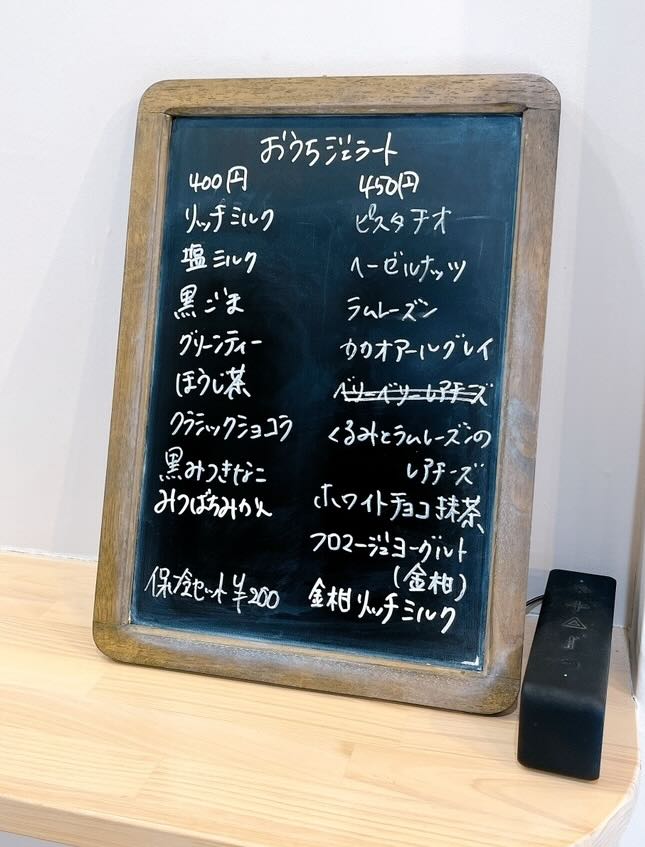 おうちジェラート
400円
リッチミルク
塩ミルク
黒ごま
グリーンティー
ほうじ茶
クラシックショコラ
黒みつきなこ
みつばちみかん
保冷セット ¥200
450円
ピスタチオ
ヘーゼルナッツ
ラムレーズン
カカオアールグレイ
ベリーベリーレアチーズ
くるみとラムレーズンの
レアチーズ
ホワイトチョコ抹茶
フロマージュヨーグルト
(金柑)
金柑リッチミルク